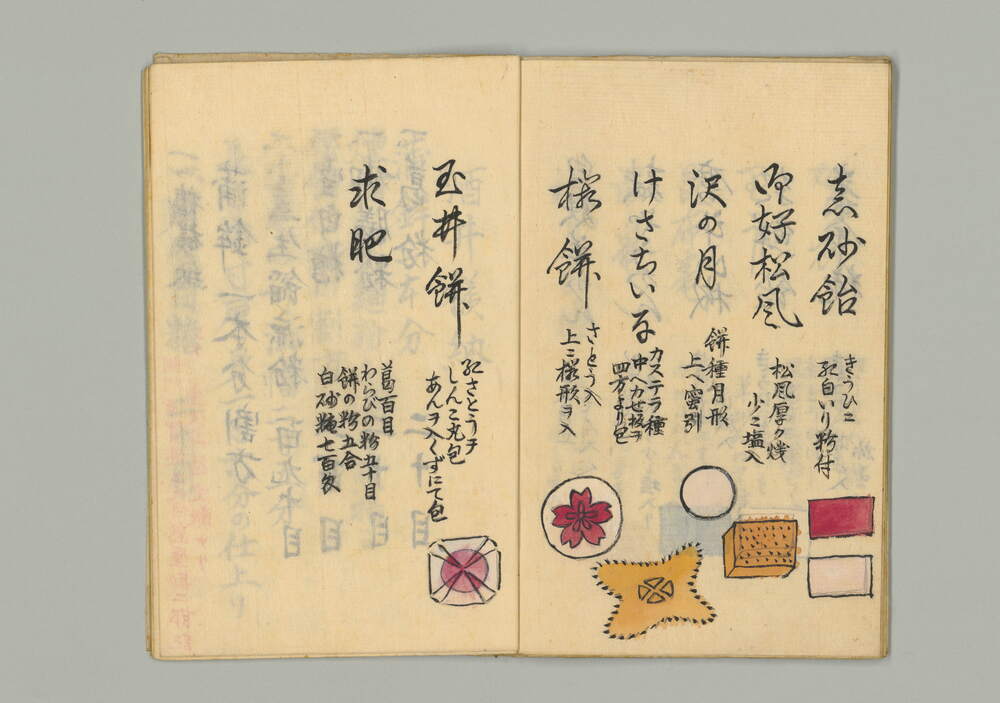 志砂飴
きうひニ
紅白いり粉付
御好松風
松風厚ク燒
少々塩入
沢の月
餅種月形
上ヘ蜜引
けさちいな
カステラ種
中ヘカせ板ヲ
四方より包
桜餅
さとう入
上ニ桜形ヲ入
玉井餅
紅さとうヲ
しんこ丸包
あんヲ入くずにて包
求肥
葛百目
わらびの粉五十目
餅の粉五合
白砂糖七百匁